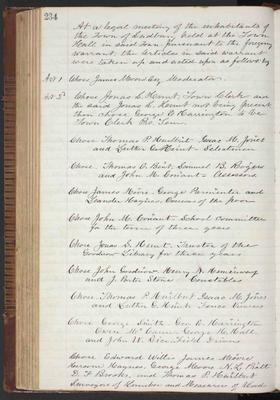 234
At a legal meeting of the inhabitants of
the Town of Sudbury, held at the Town
Hall in said Town pursuant to the foregoing
warrant, the Articles in said warrant
were taken up and acted upon as follows by
Art 1 Chose James Moore Esq Moderator.
Art 2d Chose Jonas S. Hunt, Town Clerk and
the said Jonas S. Hunt not being present
then chose George E Harrington to be
Town Clerk Pro Tem
Chose Thomas P. Hurlbut Isaac M. Jones
and Luther E Hunt Selectmen
Chose Thomas A. Bent Samuel B. Rogers
and John M. Conant Assessors
Chose James Moore George Parmenter and
Leander Haynes Overseers of the poor
Chose John M. Conant School Committee
for the term of three years
Chose Jonas S. Hunt, Trustee of the
Goodnow Library for three years
Chose John Goodnow Henry H.
and J. Porter Stone Constables
Chose Thomas P. Hurlbut Isaac M. Jones
and Luther E. Hunt Fence Viewers
Chose George Smith Geo. E. Harrington
George H. Hall
and John W. Field Drivers
Chose Edward Willis James Moore
Haynes, George Stone, N. L. Pratt
D. F. Brooks, and Thomas P. Hurlbut
Surveyors of Lumber and Measurers of Wood